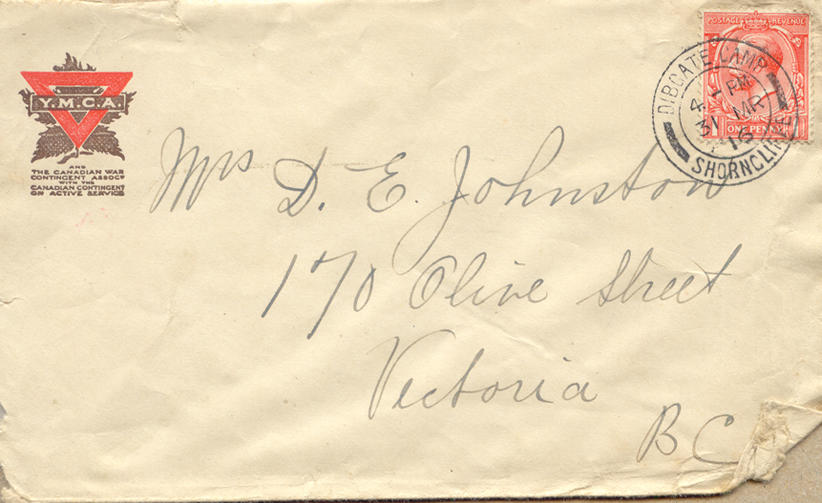 Y.M.C.A.
AND
THE CANADIAN WAR
CONTINGENT ASSOCN
WITH THE
CANADIAN CONTINGENT
ON ACTIVE SERVICE
POSTAGE REVENUE
ONE PENNY
DIBGATE CAMP
4 - PM
31 MR
16
SHORNCLIFFE
Mrs D. E. Johnston
170 Olive Street
Victoria
BC